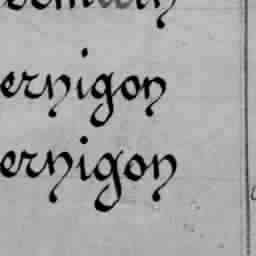 ernigon
ernigon